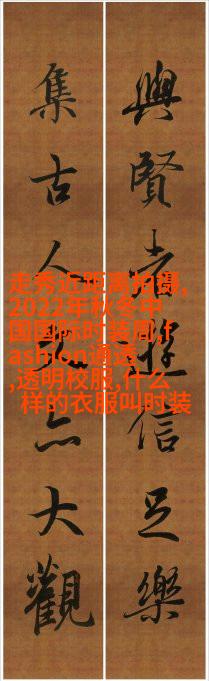 與賢者遊信足樂
集古人亦大觀
走秀近距离拍摄,
2022年秋冬中
国国际时装周,f
ashion通道
,透明校服,什么
样的衣服叫时装